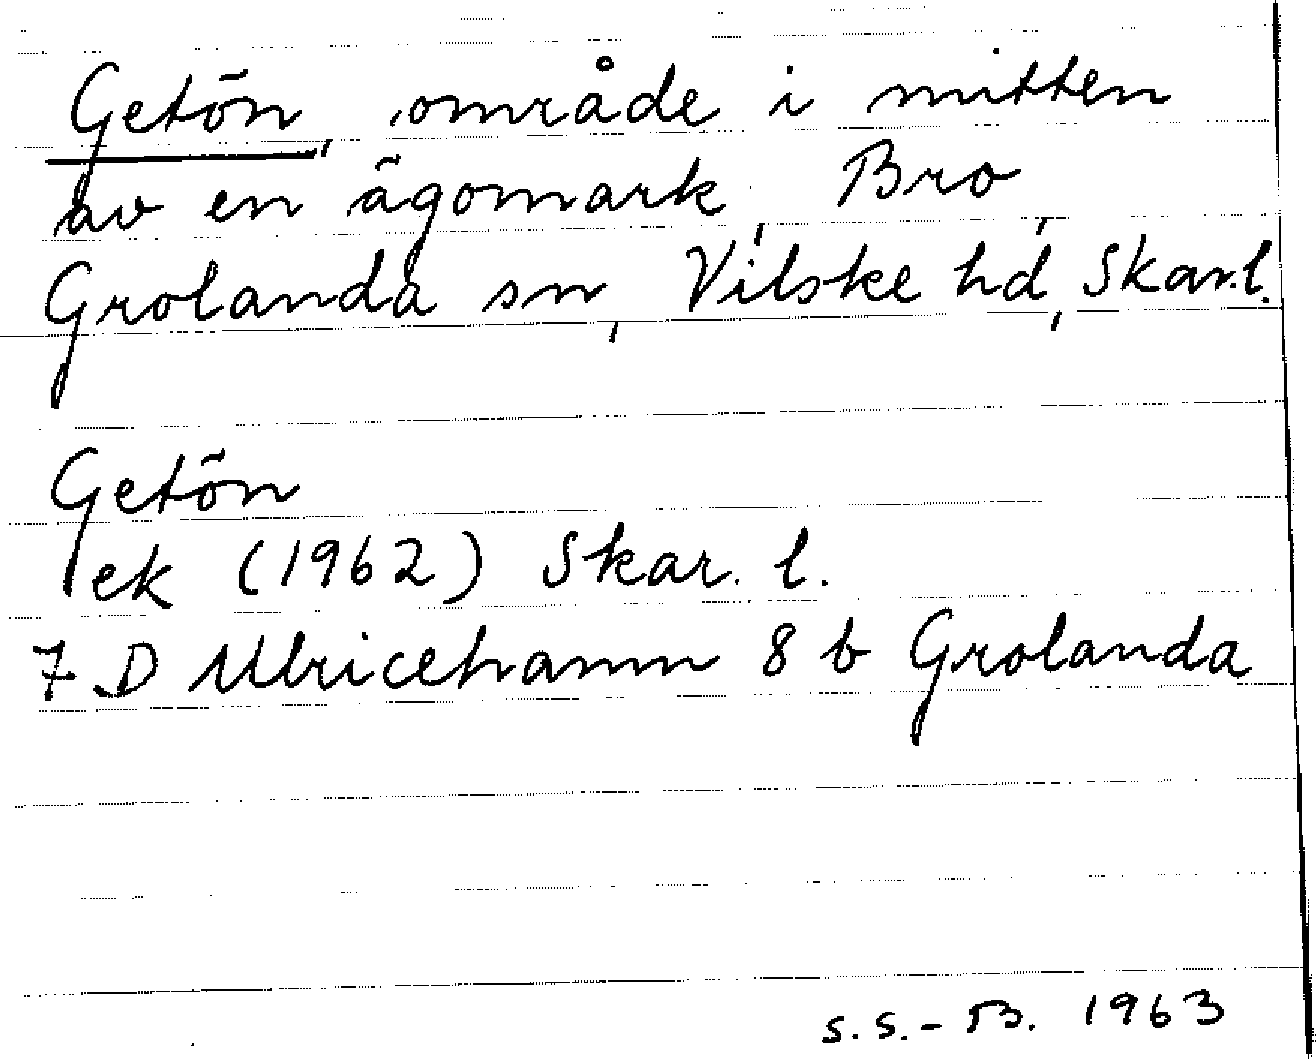 Getön, område i mitten
av en ägomark, Bro,
Grolanda sn, Vilske hd, Skar.l.
Getön
ek (1962) Skar. l.
7 D Ulricehamn 8 b Grolanda
S.S.-B. 1963